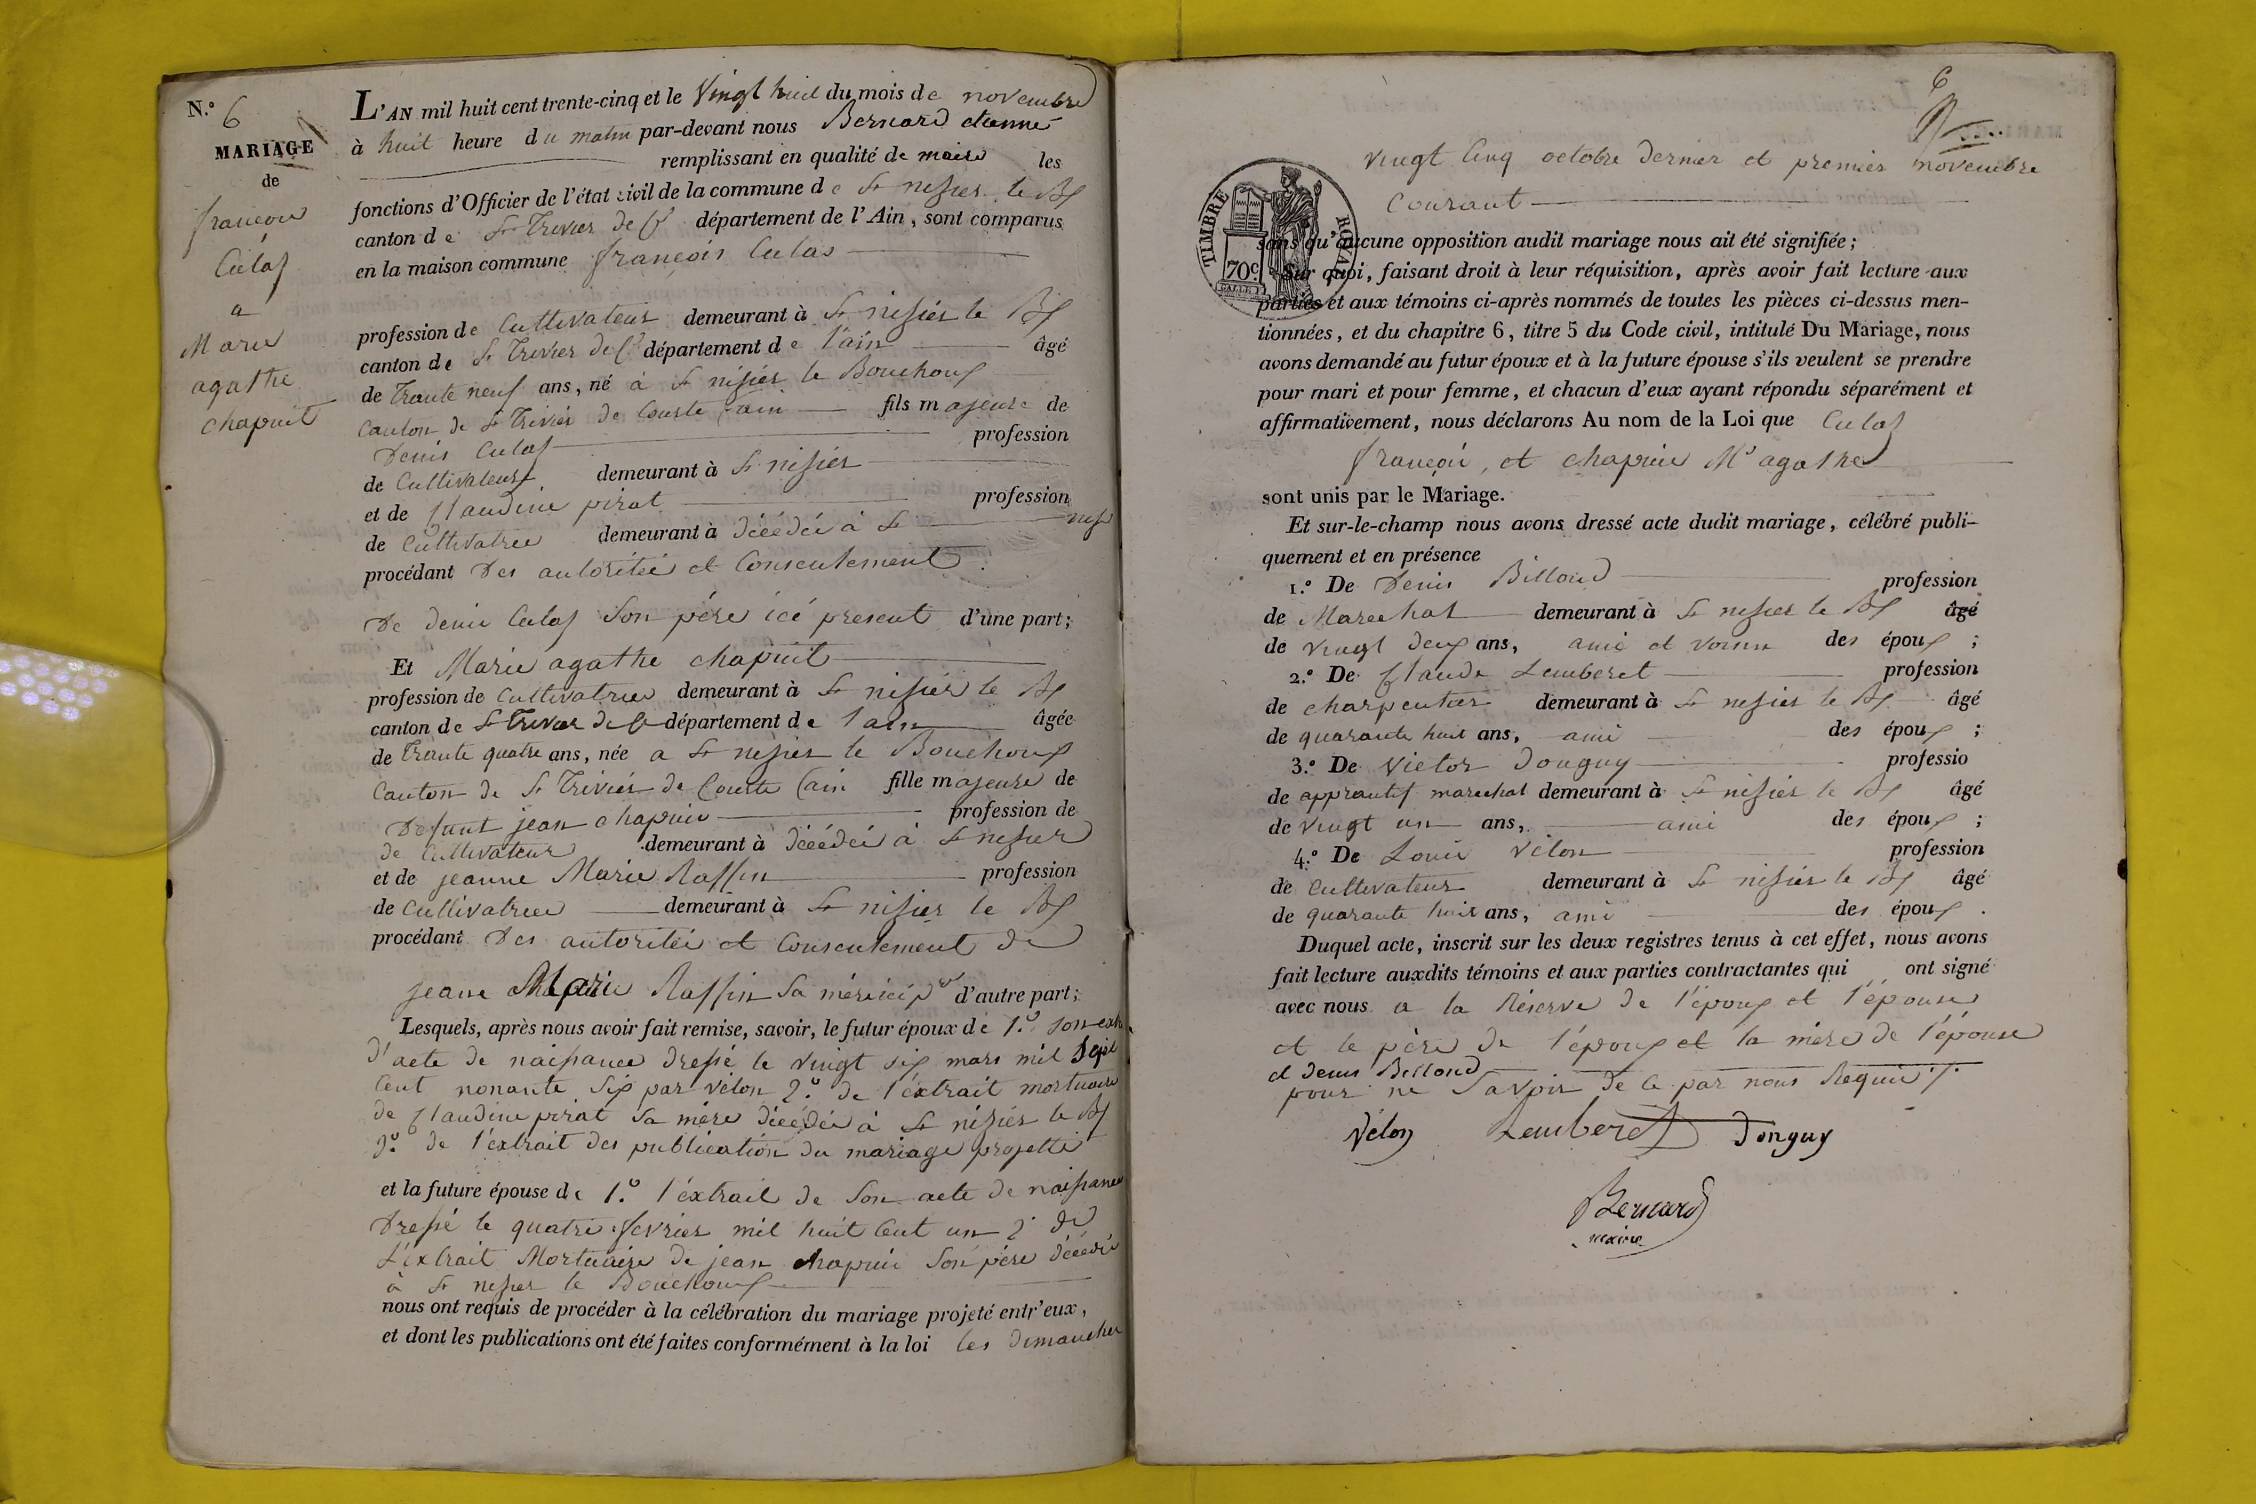 N.° 6
MARIAGE
de
françois
Culas
a
Marie
agathe
chapuit
L'AN mil huit cent trente-cinq et le vingt huit du mois de novembre
à huit heure du matin par-devant nous Bernard etienne
remplissant en qualité de maire les
fonctions d'Officier de l'état civil de la commune de St nisier le Bx
canton de St Trivier de Ce département de l'Ain, sont comparus
en la maison commune françois Culas
profession de Cultivateur demeurant à St nisier le Bx
canton de St Trivier de Ce département de l'ain âgé
de trante neuf ans, né à St nisier le Bouchoux
canton de St Trivier de Courte (ain fils majeure de
Denis Culas profession
de Cultivateur demeurant à St nisier
et de Claudine pirat profession
de Cultivatrice demeurant à décédée à St nisr
procédant Des autoritée et Consentement
De denis Culas Son père icé present d'une part;
Et Marie agathe chapuit
profession de Cultivatrice demeurant à St nisier le Bx
canton de St Trivier de Ce département de l'ain âgée
de trante quatre ans, née a St nisier le Bouchoux
Canton de St Trivier de Courte (ain fille majeure de
Defunt jean chapuis profession de
de Cultivateur demeurant à décédé à St nisier
et de jeanne Marie Raffin profession
de Cultivatrice demeurant à St nisier le Bx
procédant Des autoritée et Consentement de
jeane Marie Raffin Sa mére ici pt d'autre part;
Lesquels, après nous avoir fait remise, savoir, le futur époux de 1.° son ext
d'acte de naissance dressé le vingt six mars mil Sept
Cent nonante Six par vélon 2.° de l'éxtrait mortuaire
de Claudine pirat Sa mére décédée à St nisier le Bx
3.° de l'éxtrait des publication du mariage projetté
et la future épouse de 1.° l'éxtrail de Son acte de naissance
Dressé le quatre fevrier mil huit Cent un 2° de
L'éxtrait Mortuaire de jean chapuis Son pére décédé
à St nisier le Bouchoux
nous ont requis de procéder à la célébration du mariage projeté entr'eux,
et dont les publications ont été faites conformément à la loi les dimanches
6
vingt Cinq octobre dernier et premier novembre
Courant
TIMBRE ROYAL
70c
sans qu'aucune opposition audit mariage nous ait été signifiée;
Sur quoi, faisant droit à leur réquisition, après avoir fait lecture aux
parties et aux témoins ci-après nommés de toutes les pièces ci-dessus men-
tionnées, et du chapitre 6, titre 5 du Code civil, intitulé Du Mariage, nous
avons demandé au futur époux et à la future épouse s'ils veulent se prendre
pour mari et pour femme, et chacun d'eux ayant répondu séparément et
affirmativement, nous déclarons Au nom de la Loi que Culas
françois, et chapuis Me agathe
sont unis par le Mariage.
Et sur-le-champ nous avons dressé acte dudit mariage, célébré publi-
quement et en présence
1.° De Denis Billoud profession
de Marechal demeurant à St nisier le Bx âgé
de vingt deux ans, ami et voisin des époux ;
2.° De Claude Lemberet profession
de charpentier demeurant à St nisier le Bx âgé
de quarante huit ans, ami des époux ;
3.° De victor Donguy professio
de apprantif marechal demeurant à St nisier le Bx âgé
de vingt un ans, ami des époux ;
4.° De Louis Vélon profession
de Cultivateur demeurant à St nisier le Bx âgé
de quarante huit ans, ami des époux .
Duquel acte, inscrit sur les deux registres tenus à cet effet, nous avons
fait lecture auxdits témoins et aux parties contractantes qui ont signé
avec nous a la Réserve de l'époux et l'épouse
et le père de l'époux et la mére de l'épouse
et denis Billoud
pour ne Savoir de Ce par nous Requis ./.
Vélon Lemberet Donguy
Bernard
maire